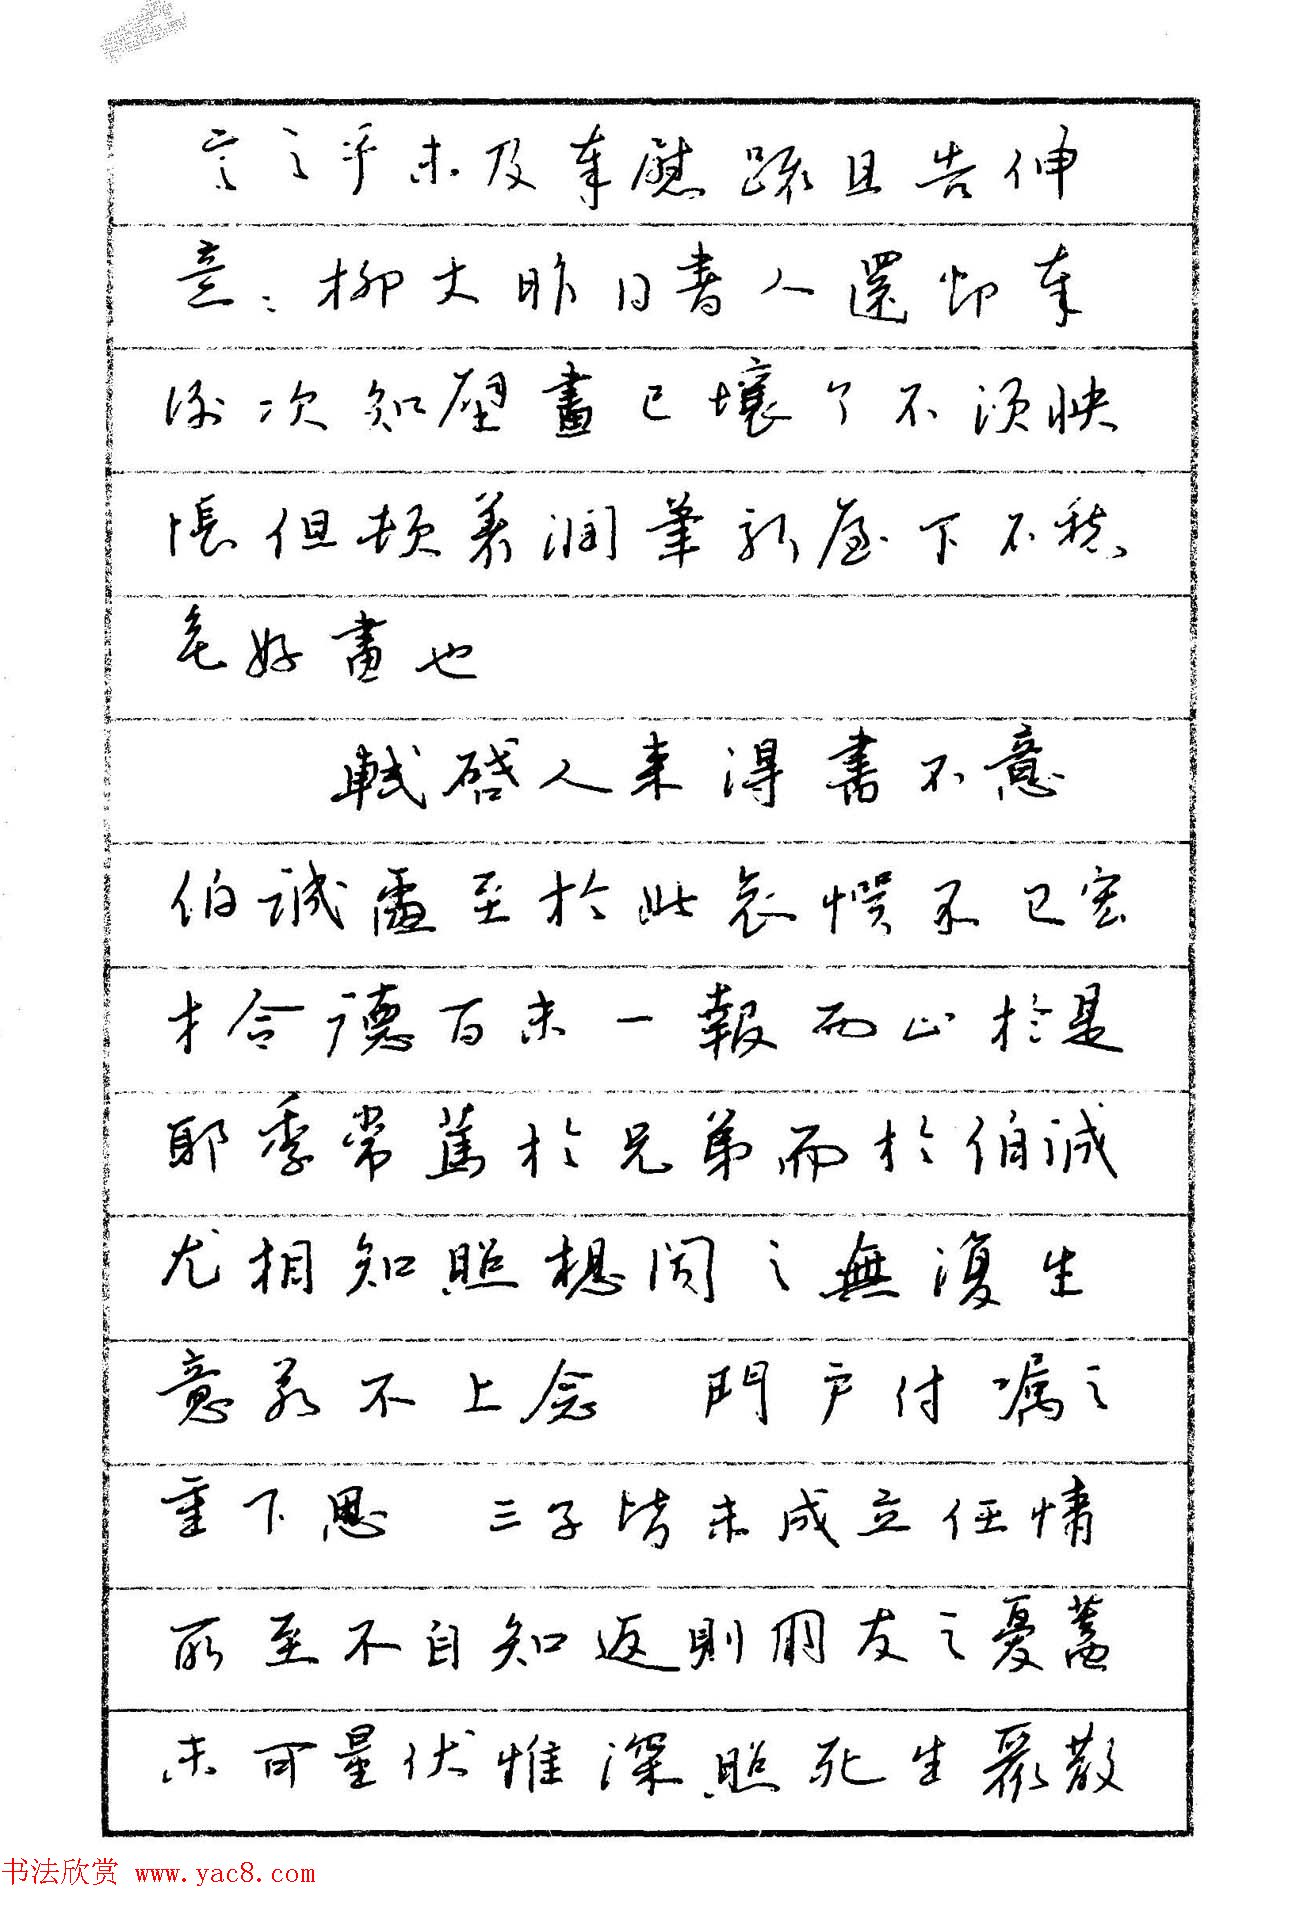 言之乎未及奉慰疏且告伸
意意柳丈昨日書人還即奉
謝次知壁畫已壞了不須怏
悵但頓着潤筆新屋下不愁
無好畫也
軾啓人来得書不意
伯誠遽至於此哀愕不已宏
才令德百未一報而止於是
耶季常篤於兄弟而於伯誠
尤相知照想聞之無復生
意若不上念 門户付嘱之
重下思 三子皆未成立任情
所至不自知返則朋友之憂蓋
未可量伏惟深照死生聚散
书法欣赏 www.yac8.com